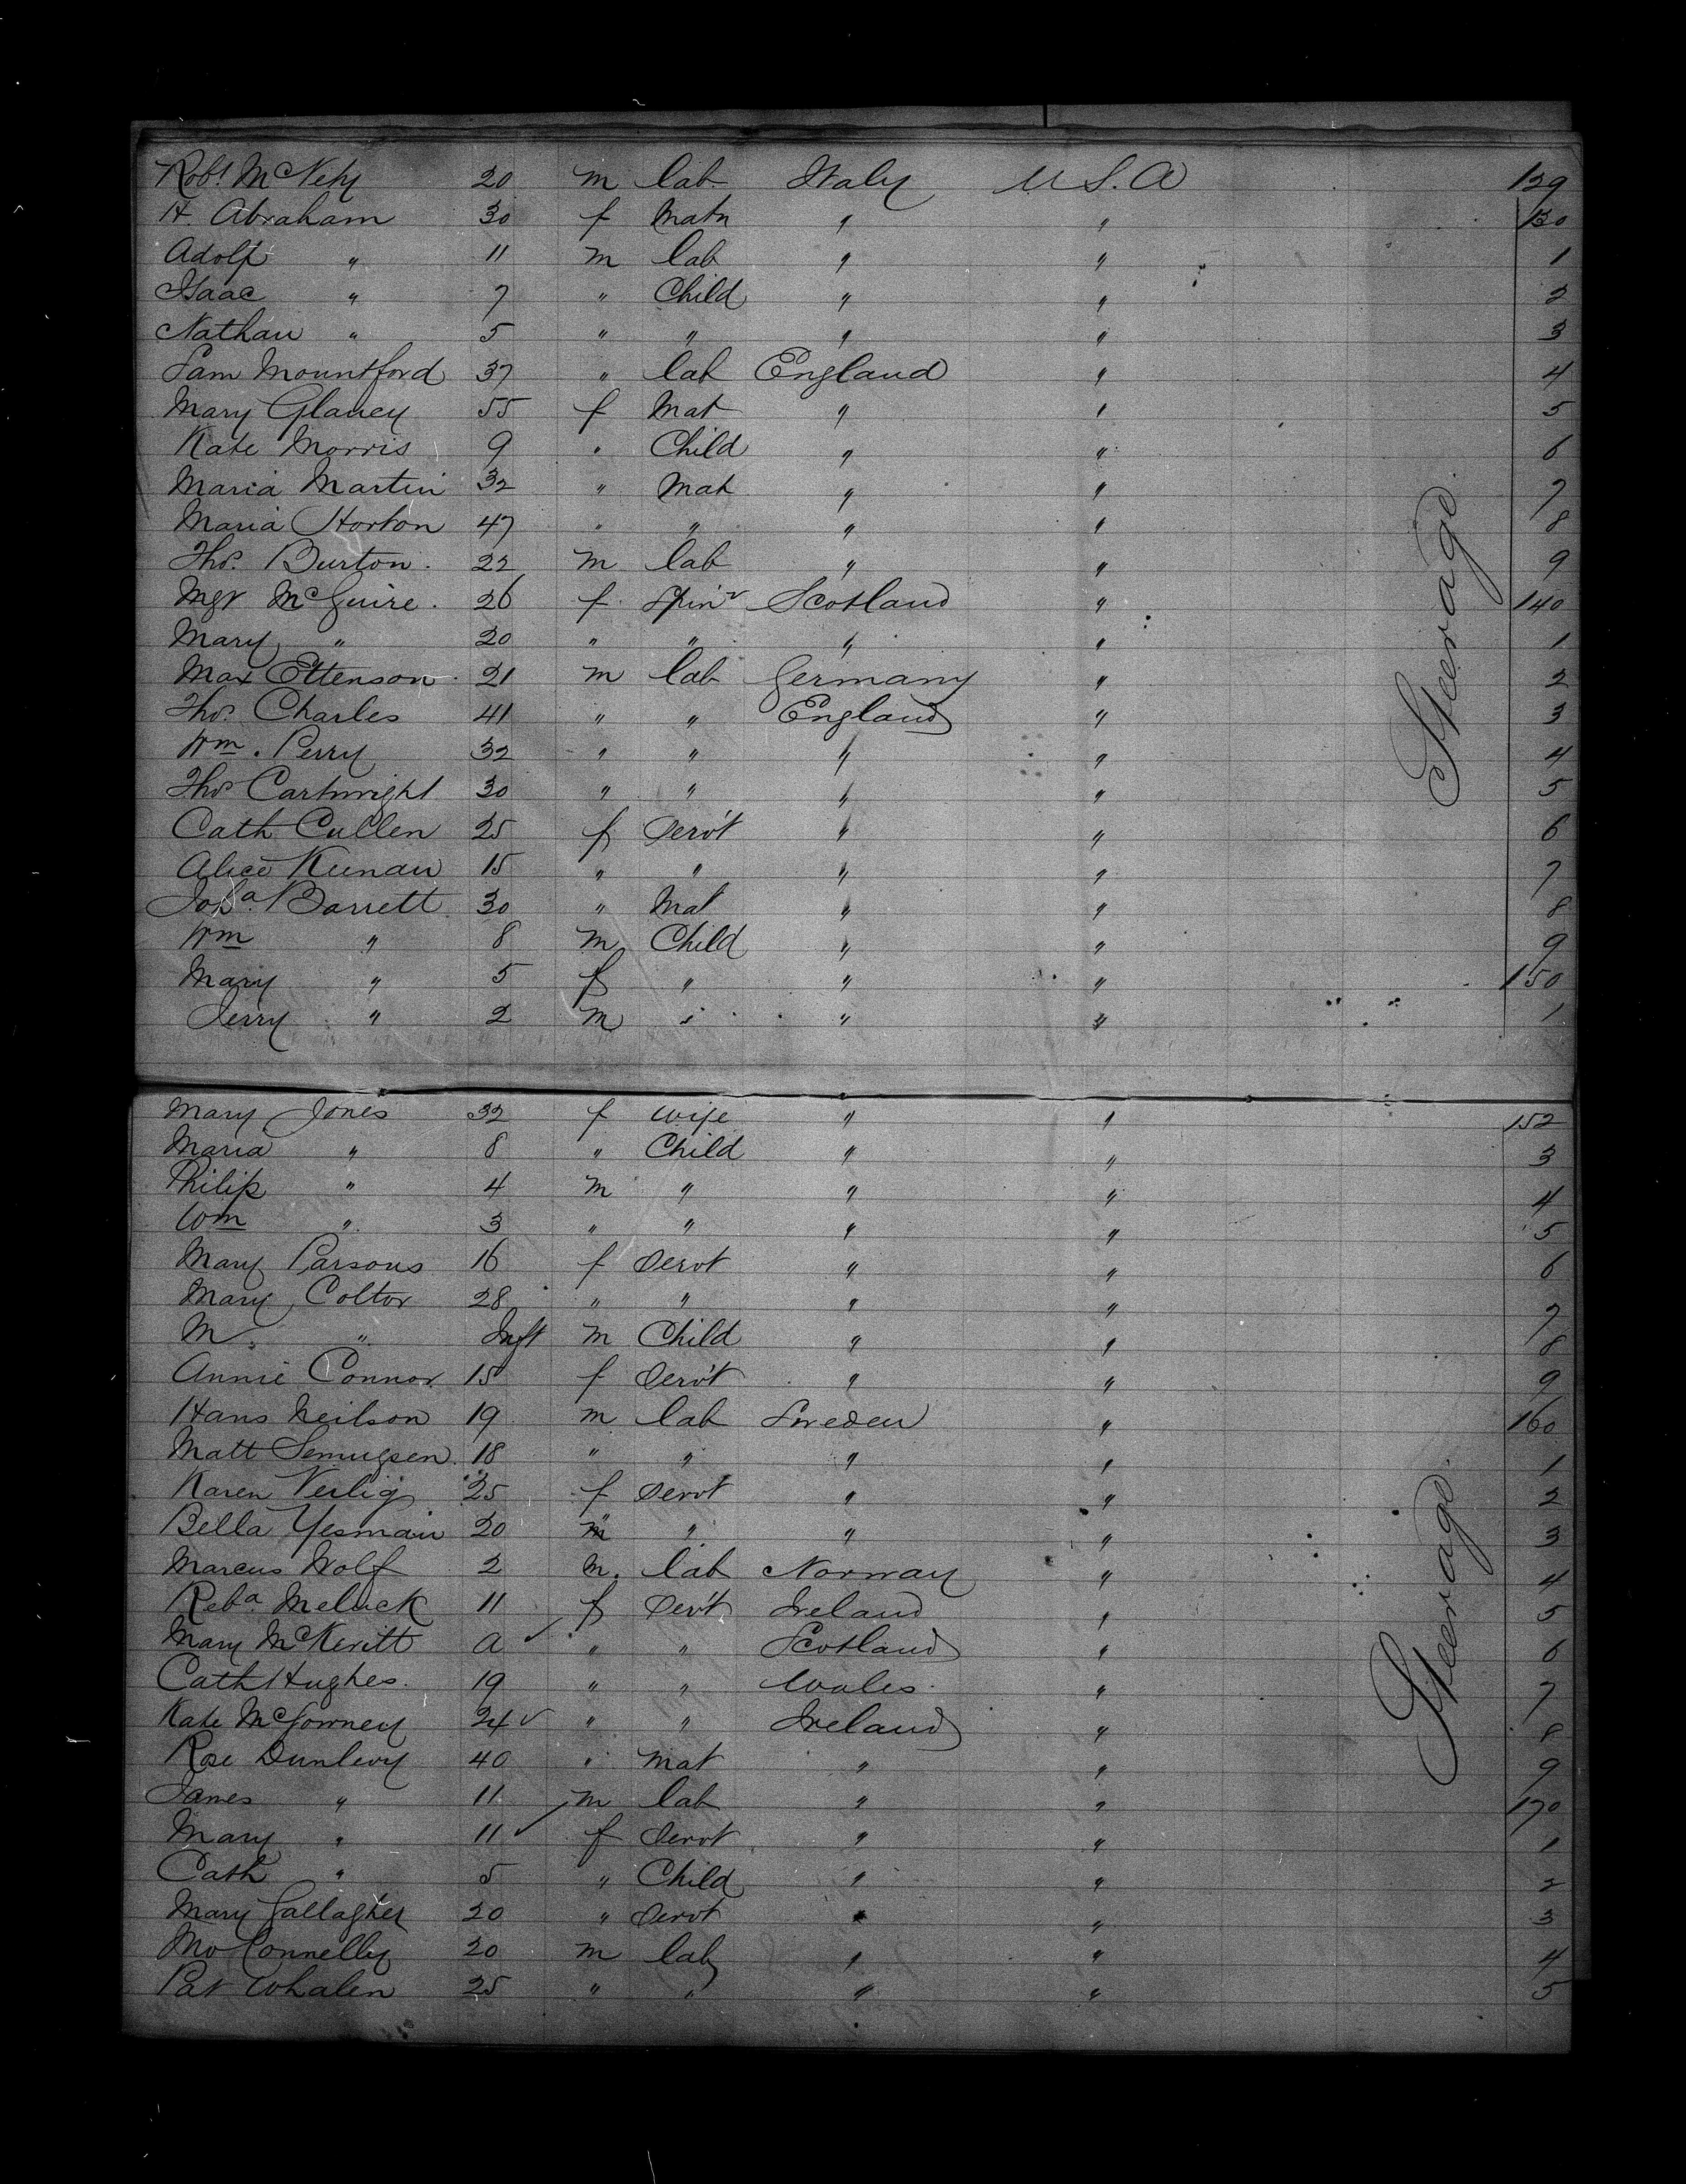 Robt McNely 20 m lab Italy U.S.A 129
H. Abraham 30 f Matn " " 130
Adolf " 11 m lab " " 1
Isaac " 7 " Child " " 2
Nathan " 5 " " " " 3
Sam Mountford 37 " lab England " 4
Mary Glancy 55 f Mat " " 5
Kate Morris 9 " Child " " 6
Maria Martin 32 " Mat " " 7
Maria Horton 47 " " " " 8
Thos. Burton. 22 m lab " " 9
Mgt McGuire. 26 f Spinr Scotland " 140
Mary " 20 " " " " 1
Max Ettenson 21 m lab Germany " 2
Thos. Charles 41 " " England " 3
Wm. Perry 32 " " " " 4
Thos Cartwright 30 " " " " 5
Cath Cullen 25 f Servt " " 6
Alice Keenan 15 " " " " 7
Barrett 30 " Mat " " 8
Wm " 8 m Child " " 9
Mary " 5 f " " " 150
Jerry " 2 m " " " 1
Steerage
Mary Jones 32 f Wife " " 152
Maria " 8 " Child " " 3
Philip " 4 m " " " 4
Wm " 3 " " " " 5
Mary Parsons 16 f Servt " " 6
Mary Coltor 28 " " " " 7
M " Inft m Child " " 8
Annie Connor 15 f Servt " " 9
Hans Neilson 19 m lab Sweden " 160
Matt 18 " " " " 1
Karen Verlig 25 f Servt " " 2
Bella Yesmain 20 " " " " 3
Marcus Wolf 2 m. lab Norway " 4
Reba. Meluck 11 f Servt Ireland " 5
Mary McKevitt a " " Scotland " 6
Cath Hughes. 19 " " Wales. " 7
Kate McGowney 24 " " Ireland " 8
Rose Dunlevy 40 " Mat " " 9
James " 11 m lab " " 170
Mary " 11 f Servt " " 1
Cath " 5 " Child " " 2
Mary Gallagher 20 " Servt " " 3
Connelly 20 m lab " " 4
Pat Whalen 25 " " " " 5
Steerage